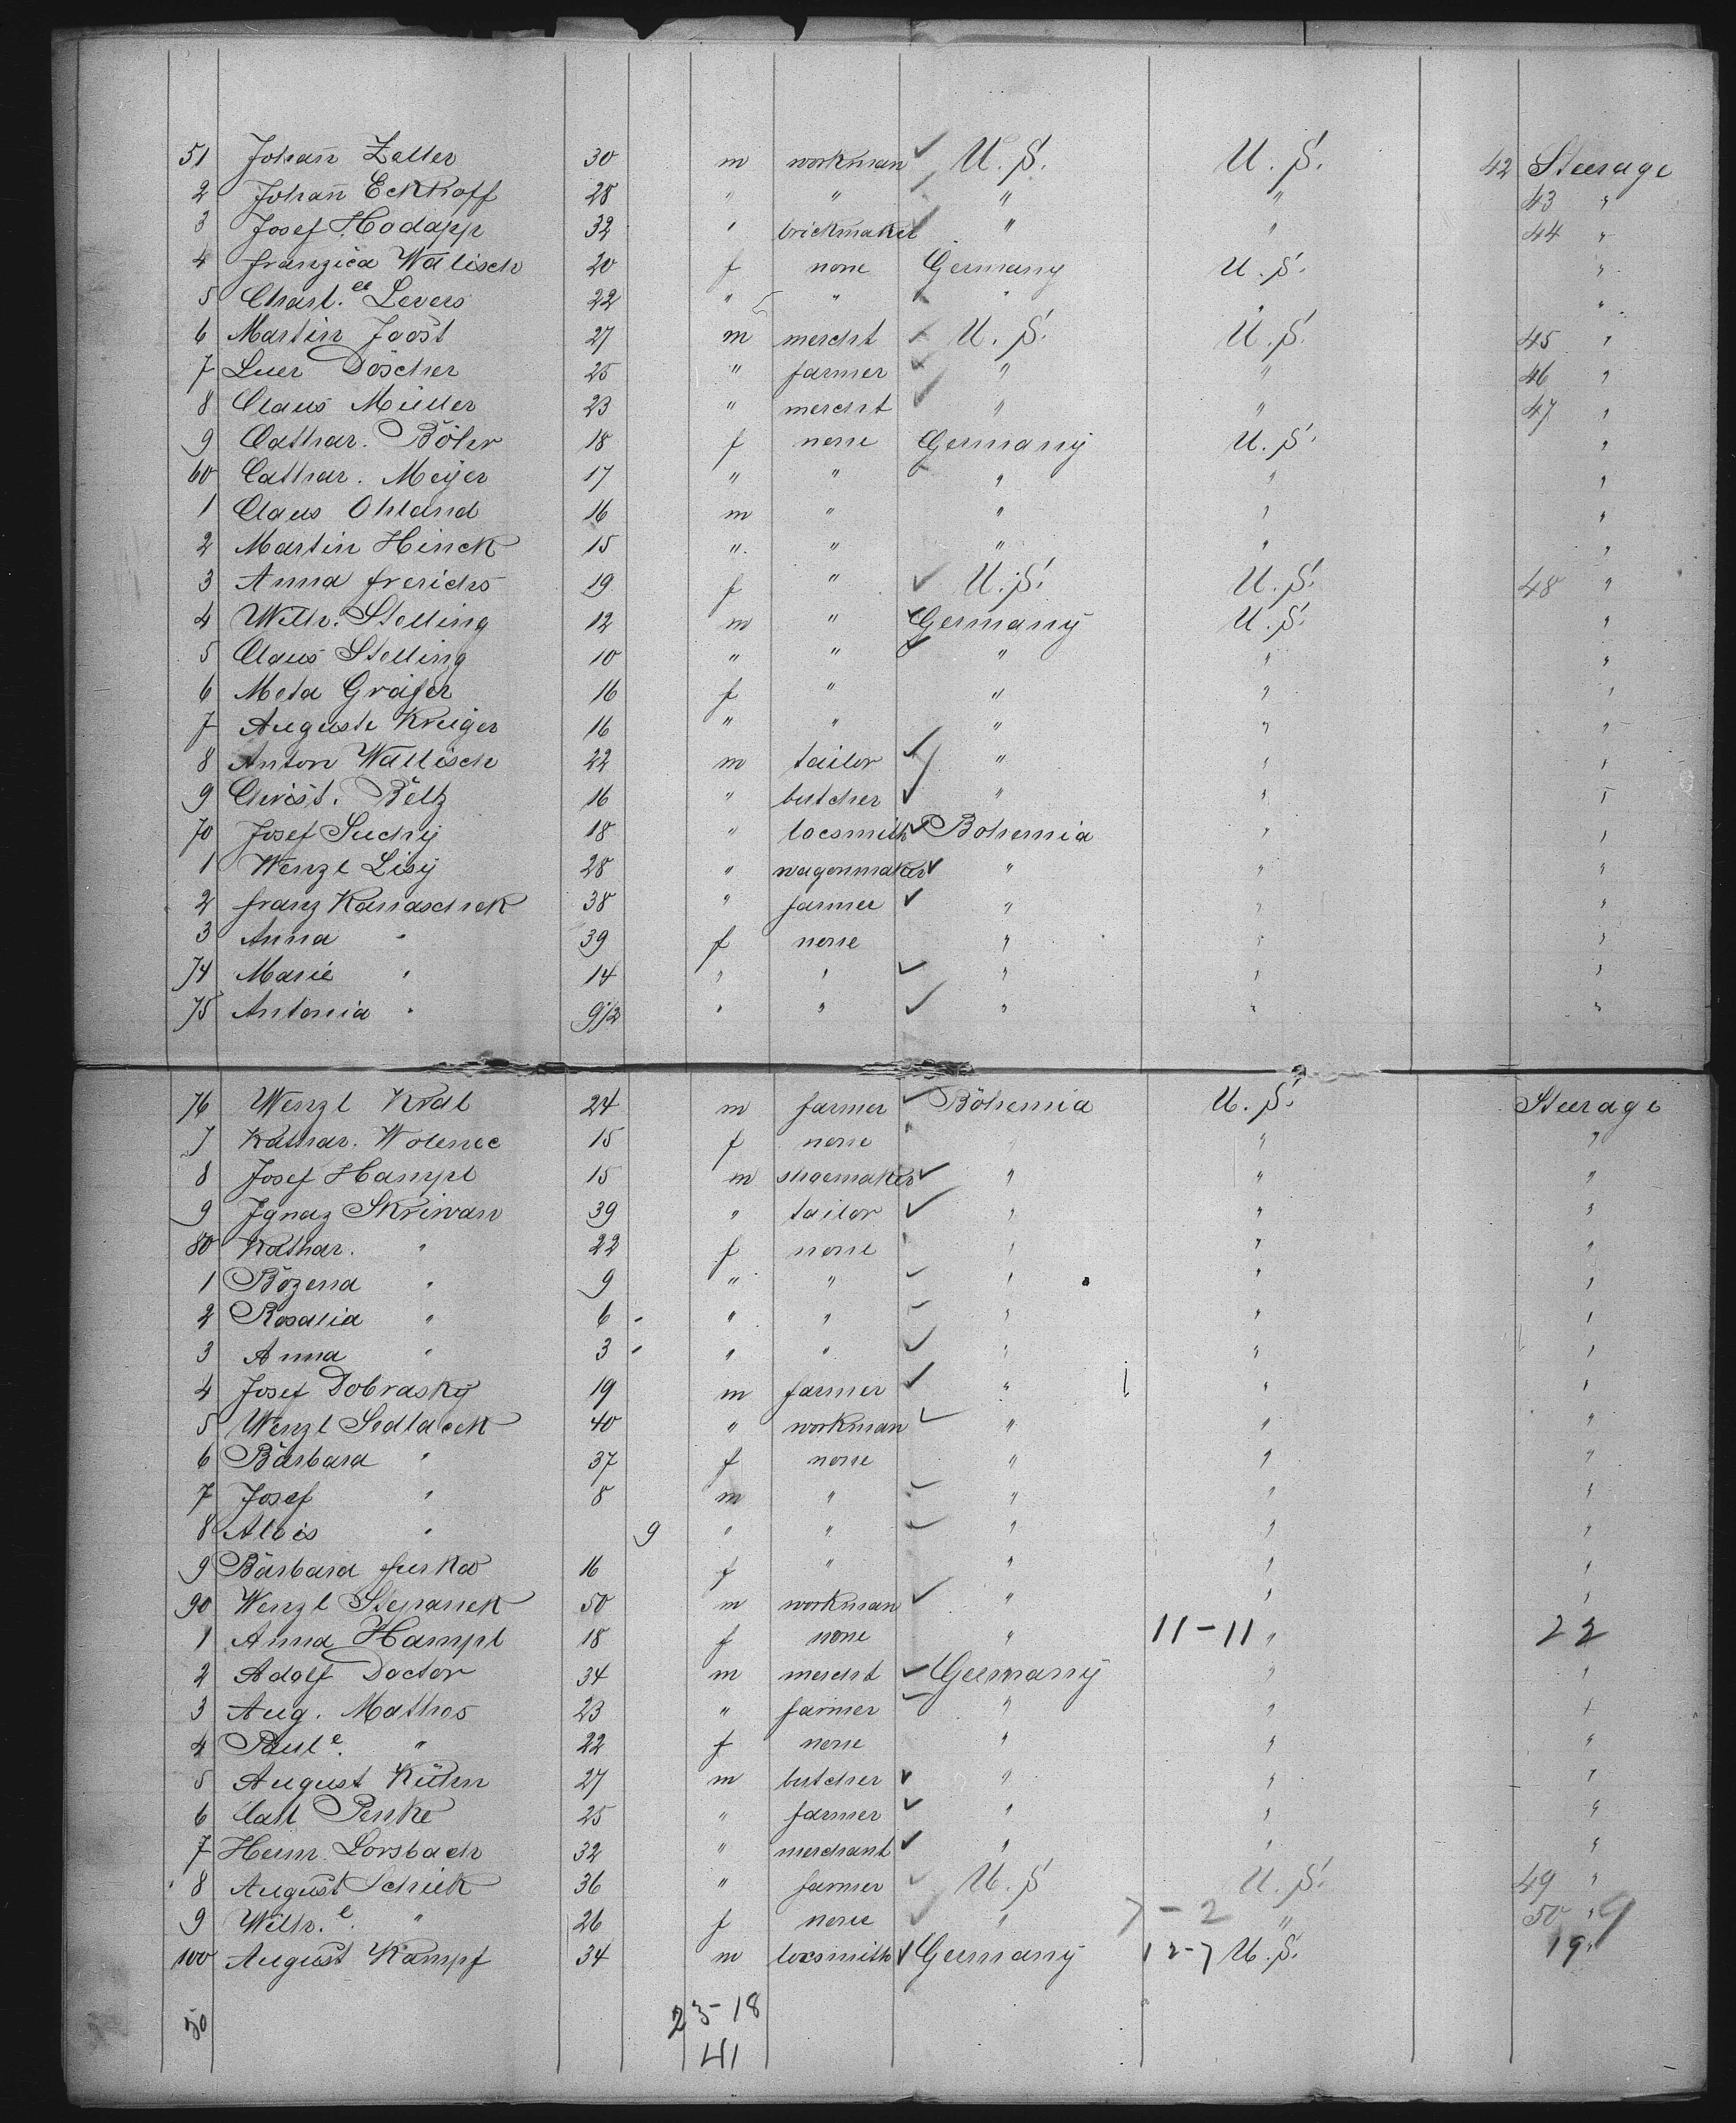 51 Johañ Zeller 30 m workman U. S. U. S. 42 Steerage
2 Johañ Eckhoff 28 " " " " 43 "
3 Josef Hodapp 32 " brickmaker " " 44 "
4 Franzica Walisch 20 f none Germany U. S. "
5 Charl.te Levers 22 " " " " "
6 Martin Joost 27 m mercht U. S. U. S. 45 "
7 Luer Döscher 25 " farmer " " 46 "
8 Claus Müller 23 " mercht " " 47 "
9 Cathar. Böhr 18 f none Germany U. S. "
60 Cathar. Meyer 17 " " " " "
1 Claus Ohland 16 m " " " "
2 Martin Hinck 15 " " " " "
3 Anna Frerichs 19 f " U. S. U. S. 48 "
4 Wilh. Stelling 12 m " Germany U. S. "
5 Claus Stelling 10 " " " " "
6 Meta Gräfer 16 f " " " "
7 Auguste Krüger 16 " " " " "
8 Anton Wallisch 22 m tailor " " "
9 Christ. Beltz 16 " butcher " " "
70 Josef Suchy 18 " locsmith Bohemia " "
1 Wenzl Lisy 28 " wagonmaker " " "
2 Franz Kanaschek 38 " farmer " " "
3 Anna " 39 f none " " "
74 Marie " 14 " " " " "
75 Antonia " 9/12 " " " " "
76 Wenzl Kral 24 m farmer Bohemia U. S. Steerage
7 Kathar. Wolenec 15 f none " " "
8 Josef Hampl 15 m shoemaker " " "
9 Ignaz Skriwan 39 " tailor " " "
80 Kathar. " 22 f none " " "
1 Bozena " 9 " " " " "
2 Rosalia " 6 " " " " "
3 Anna " 3 " " " " "
4 Josef Dobrasky 19 m farmer " " "
5 Wenzl Sedlacek 40 " workman " " "
6 Barbara " 37 f none " " "
7 Josef " 8 m " " " "
8 Alois " 9 " " " " "
9 Barbara Furka 16 f " " " "
90 Wenzl Stepanek 50 m workman " " "
1 Anna Hampl 18 f none " 11-11 " 22
2 Adolf Doctor 34 m mercht Germany " "
3 Aug. Mathes 23 " farmer " " "
4 Paule. " 22 f none " " "
5 August Kühn 27 m butcher " " "
6 Carl Penke 25 " farmer " " "
7 Heinr. Lorsbach 32 " merchant " " "
8 August Schick 36 " farmer U. S. U. S. 49 "
9 Wilh.e. " 26 f none " 7-2 " 50 "
100 August Kampf 34 m locsmith Germany 12-7 U. S. 19 "
50 23-18
41